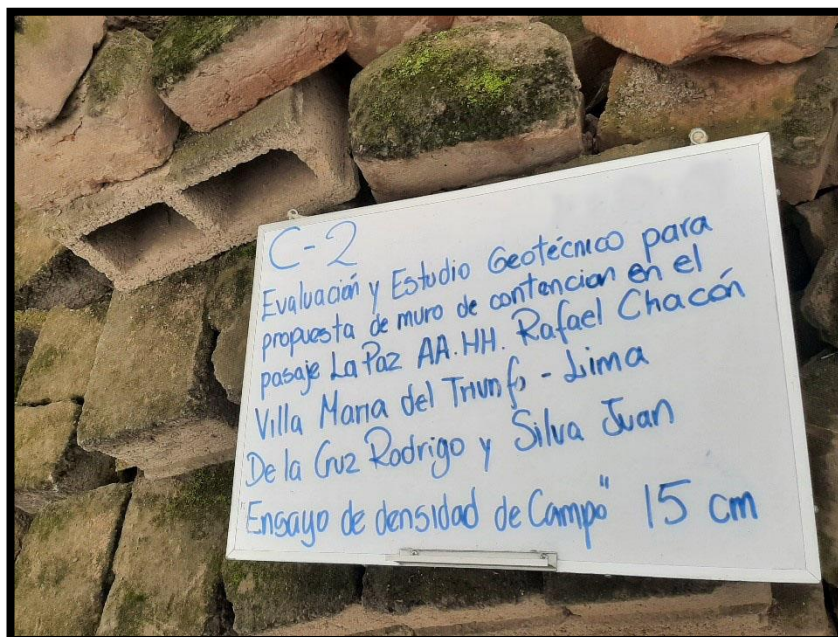 C-2
Evaluación y Estudio Geotécnico para
propuesta de muro de contencion en el
pasaje La Paz AA.HH. Rafael Chacón
Villa Maria del Triunfo - Lima
De la Cruz Rodrigo y Silva Juan
"Ensayo de densidad de Campo" 15 cm